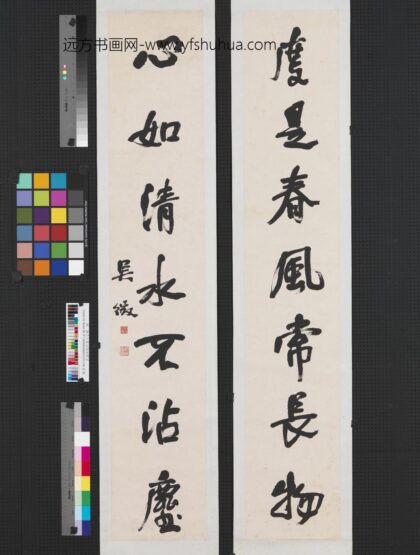 远方书画网-www.yfshuhua.com
度是春風常長物
心如清水不沾塵
吳徵